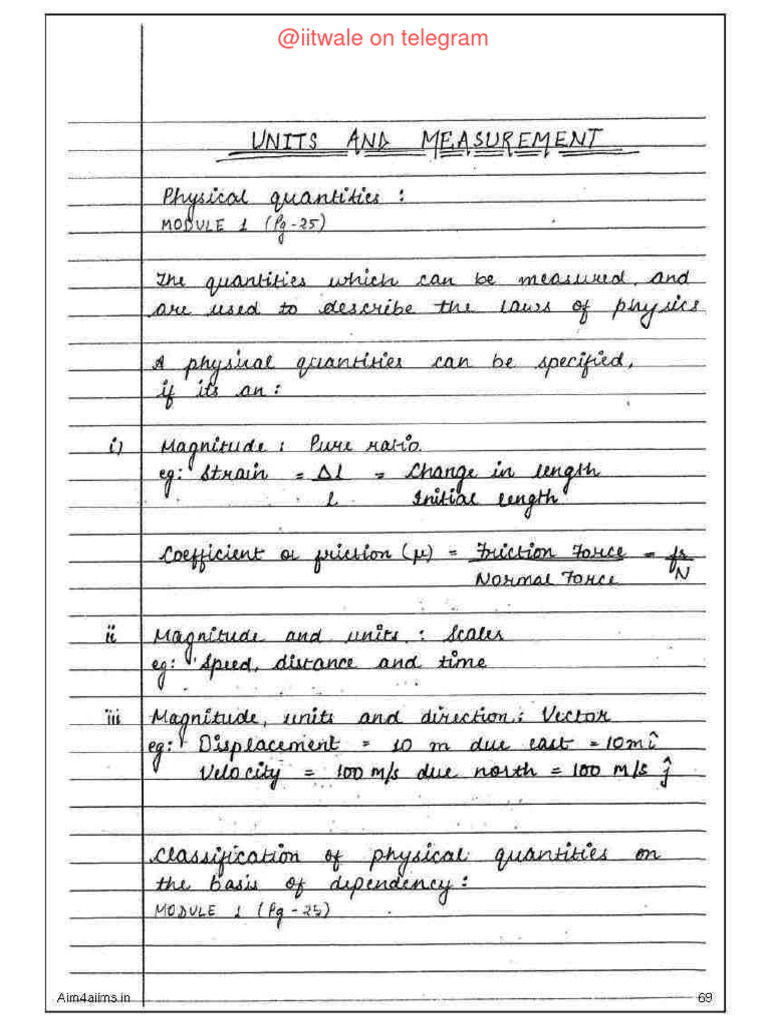 @iitwale on telegram
UNITS AND MEASUREMENT
Physical quantities :
MODULE 1 (Pg-25)
The quantities which can be measured, and
are used to describe the laws of physics
A physical quantities can be specified,
if its an :
i) Magnitude : Pure ratio.
eg: Strain = Δl = Change in length
l Initial length
Coefficient of friction (μ) = Friction Force = fs
Normal Force N
ii Magnitude and units : Scaler
eg: Speed, distance and time
iii Magnitude, units and direction : Vector
eg: Displacement = 10 m due east = 10m î
Velocity = 100 m/s due north = 100 m/s ĵ
Classification of physical quantities on
the basis of dependency :
MODULE 1 (Pg-25)
Aim4aiims.in 69